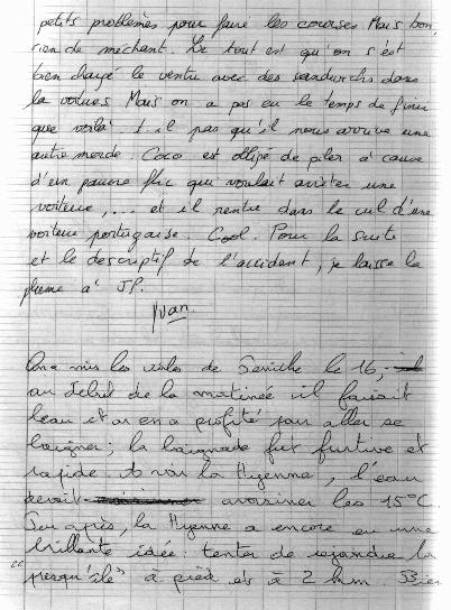 petits problèmes pour faire les courses Mais bon,
rien de méchant. Le tout est qu'on s'est
bien chargé le ventre avec des sandwichs dans
la voitures Mais on a pas eu le temps de finir
que voilà t-il pas qu'il nous arrive une
autre merde. Coco est obligé de piler à cause
d'un pauvre flic qui voulait arrêter une
voiture, ... et il rentre dans le cul d'une
voiture portugaise. Cool. Pour la suite
et le descriptif de l'accident, je laisse la
plume à JP.
Yvan
On a mis les voiles de Peniche le 16,
au début de la matinée il faisait
beau et on en a profité pour aller se
baigner; la baignade fut furtive et
rapide à voir la Hyenne, l'eau
devait avoisiner les 15°C.
Peu après, la Hyenne a encore eu une
brillante idée: tenter de rejoindre la
"presqu'île" à pied à 2 km